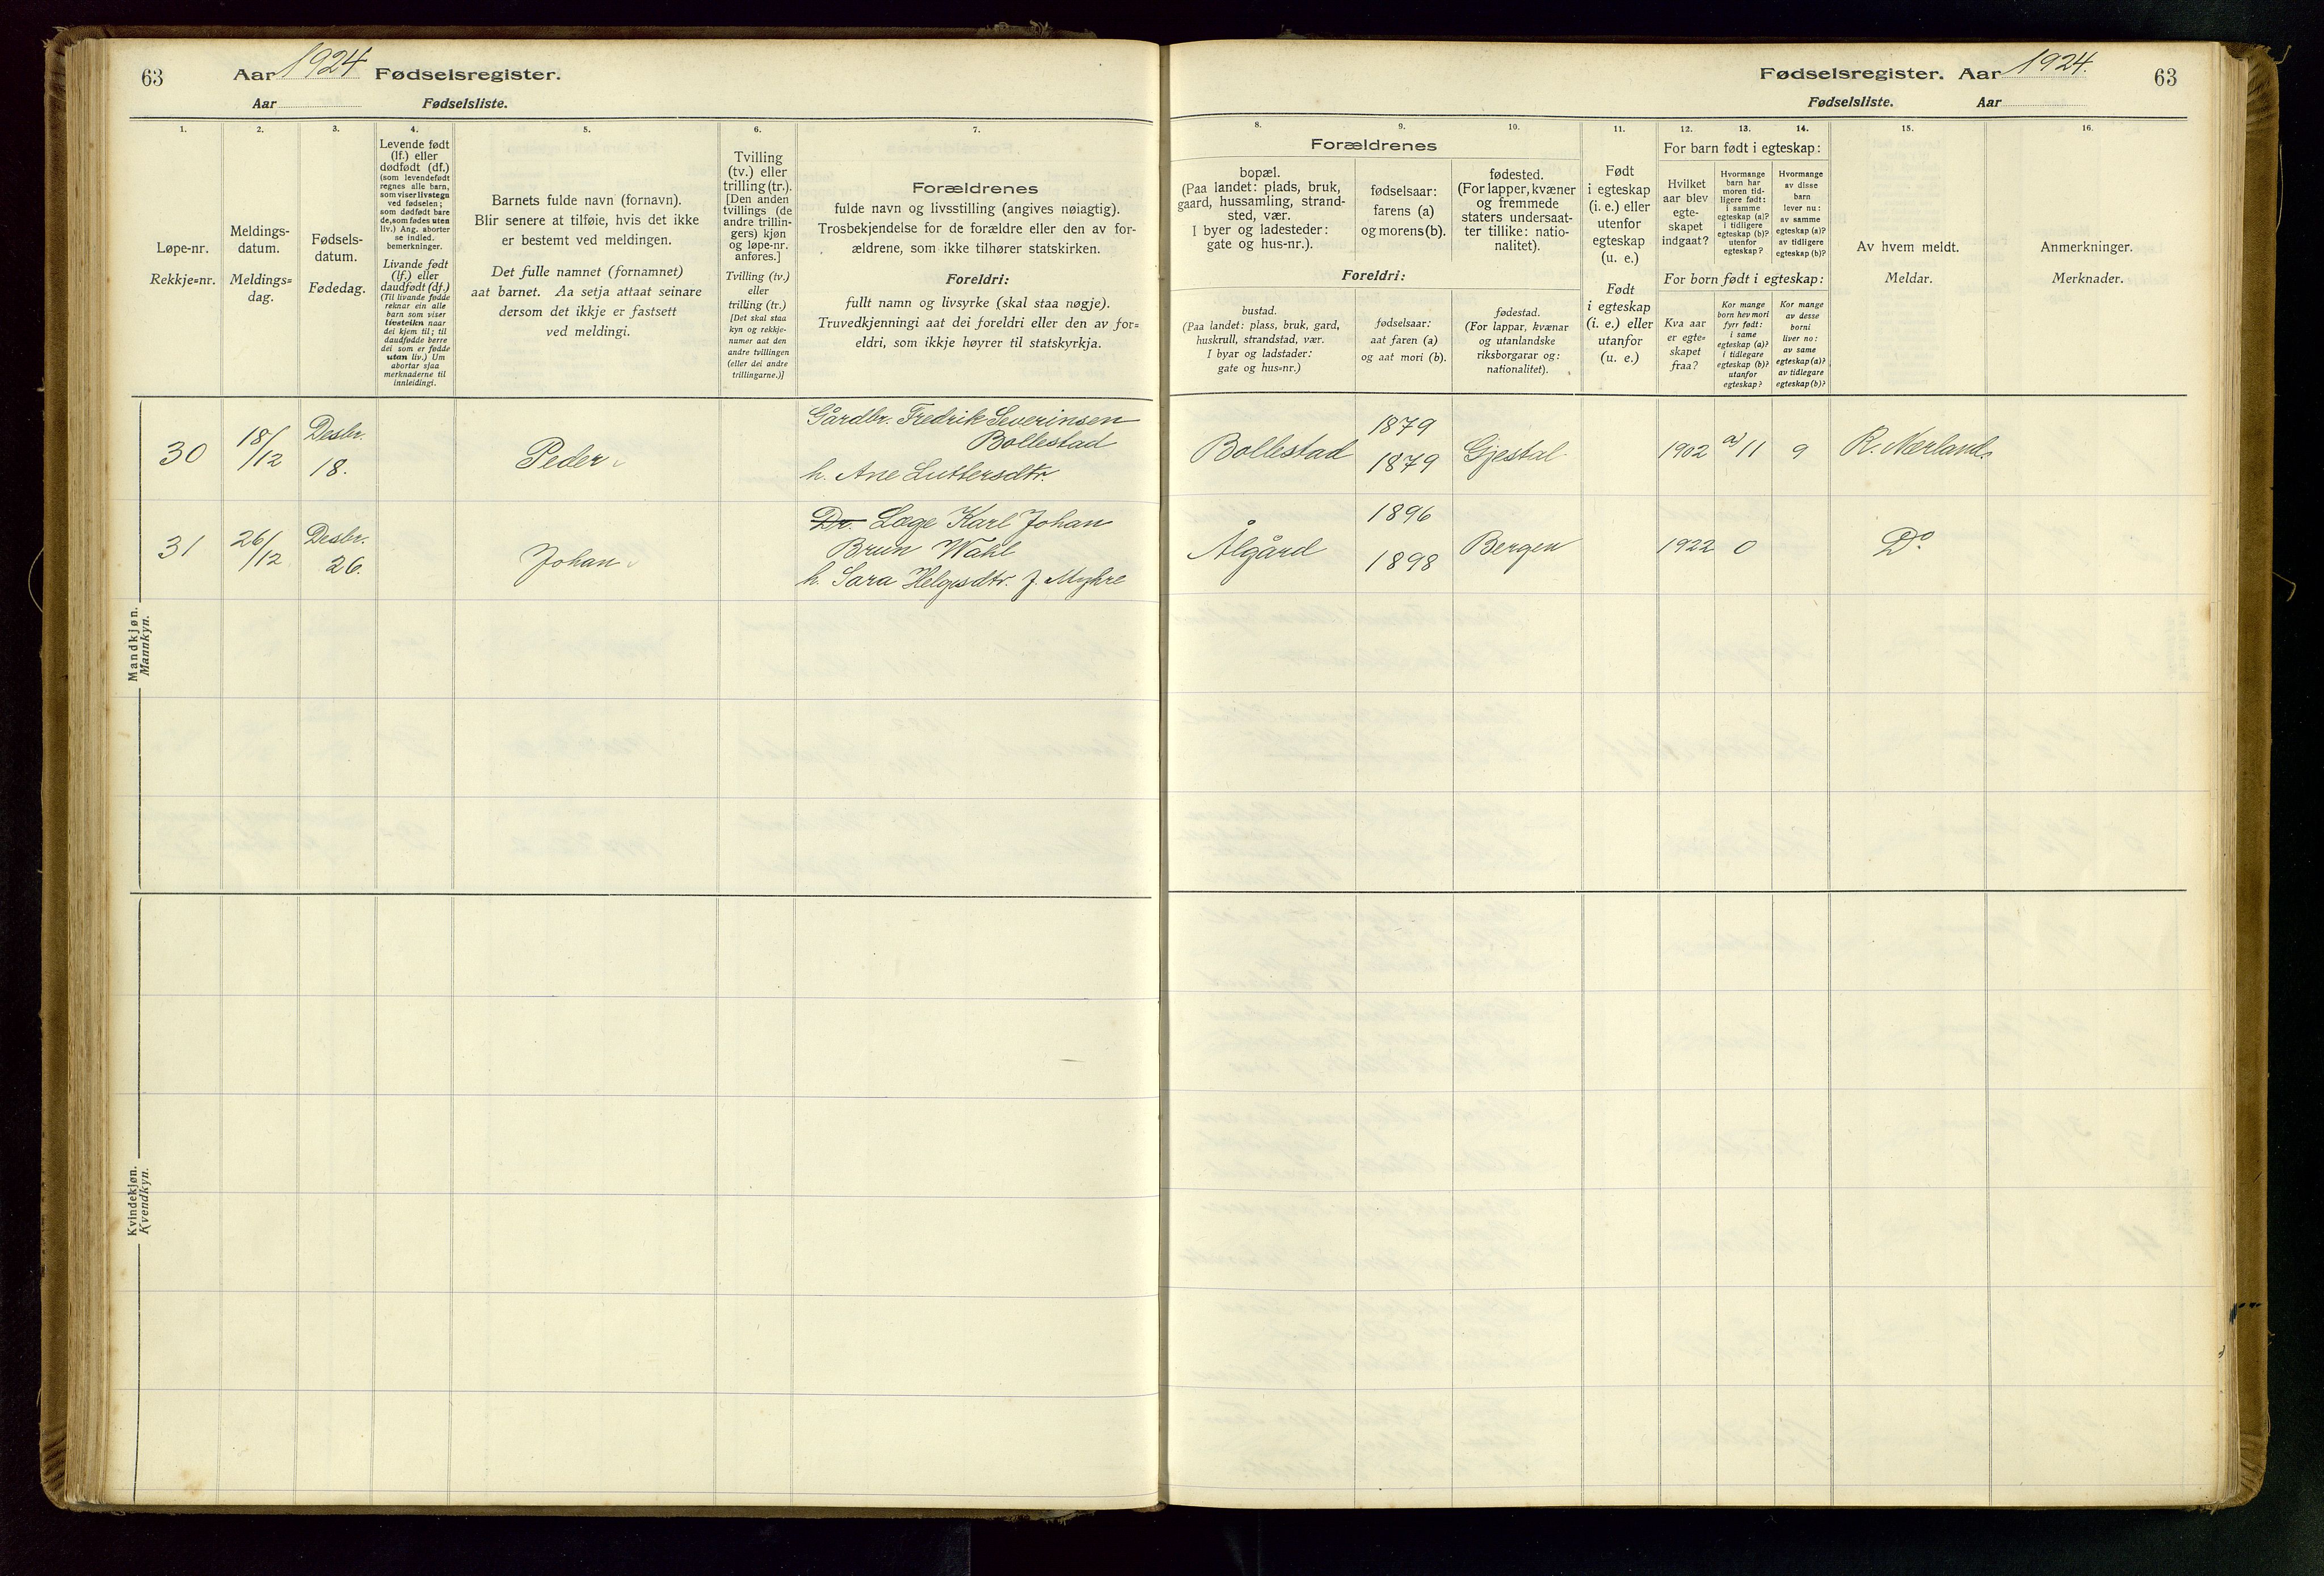 63
Aar 1924 Fødselsregister.
Aar Fødselsliste.
Fødselsregister. Aar 1924.
63
Fødselsliste. Aar
1.
2.
3.
4.
5.
6.
7.
Løpe-nr.
Rekkje=nr.
Meldings-
datum.
Meldings=
dag.
Fødsels-
datum.
Fødedag.
Levende født
(lf.) eller
dødfødt (df.)
(som levendefødt
regnes alle barn,
som viser livstegn
ved fødselen;
som dødfødt bare
de, som fødes uten
liv.) Ang. aborter
se indled.
bemerkninger.
Livande født
(lf.) eller
daudfødt (df.)
(Til livande fødde
reknar ein alle
barn som viser
livsteikn naar
dei kjem til; til
daudfødde berre
dei som er fødde
utan liv.) Um
abortar sjaa
merknaderne til
innleidingi.
Barnets fulde navn (fornavn).
Blir senere at tilføie, hvis det ikke
er bestemt ved meldingen.
Det fulle namnet (fornamnet)
aat barnet. Aa setja attaat seinare
dersom det ikkje er fastsett
ved meldingi.
Tvilling
(tv.) eller
trilling (tr.).
[Den anden
tvillings (de
andre trillin-
gers) kjøn
og løpe-nr.
anføres.]
Tvilling (tv.)
eller
trilling (tr.)
[Det skal staa
kyn og rekkje-
numer aat den
andre tvillingen
(eller dei andre
trillingarne.)]
Forældrenes
fulde navn og livsstilling (angives nøiagtig).
Trosbekjendelse for de forældre eller den av for-
ældrene, som ikke tilhører statskirken.
Foreldri:
fullt namn og livsyrke (skal staa nøgje).
Truvedkjenningi aat dei foreldri eller den av for=
eldri, som ikkje høyrer til statskyrkja.
8.
9.
10.
11.
12.
13.
14.
15.
16.
Forældrenes
bopæl.
(Paa landet: plads, bruk,
gaard, hussamling, strand-
sted, vær.
I byer og ladesteder:
gate og hus-nr.).
fødselsaar:
farens (a)
og morens (b).
fødested.
(For lapper, kvæner
og fremmede
staters undersaat-
ter tillike: natio-
nalitet).
Foreldri:
bustad.
(Paa landet: plass, bruk, gard,
huskrull, strandstad, vær.
I byar og ladstader:
gate og hus=nr.)
fødselsaar:
aat faren (a)
og aat mori (b).
fødestad.
(For lappar, kvænar
og utanlandske
riksborgarar og:
nationalitet).
Født
i egteskap
(i. e.) eller
utenfor
egteskap
(u. e.)
Født
i egteskap
(i. e.) eller
utanfor
(u. e.)
For barn født i egteskap:
Hvilket
aar blev
egte-
skapet
indgaat?
Hvormange
barn har
moren tid-
ligere født:
i samme
egteskap (a)?
i tidligere
egteskap (b)?
utenfor
egteskap?
Hvormange
av disse
barn
lever nu:
av samme
egteskap (a)?
av tidligere
egteskap (b)?
For born født i egteskap:
Kva aar
er egte=
skapet
fraa?
Kor mange
born hev mori
fyrr født:
i same
egteskap (a)?
i tidlegare
egteskap (b)?
utanfor
egteskap?
Kor mange
av desse
borni
liver no:
av same
egteskap (a)?
av tidlegare
egteskap (b)?
Av hvem meldt.
Meldar.
Anmerkninger.
Merknader.
Mandkjøn.
Mannkyn.
30
18/12
Desbr.
18.
Peder
Gårdbr. Fredrik Severinsen
Bollestad
h. Ane Luttersdtr.
Bollestad
1879
1879
Gjestal
1902
a) 11
9
R. Nerland.
31
26/12
Desbr.
26.
Johan
Dr. Læge Karl Johan
Brun Wahl
h. Sara Helgesdtr. f. Myhre
Ålgård
1896
1898
Bergen
1922
0
Do
Kvindekjøn.
Kvendkyn.